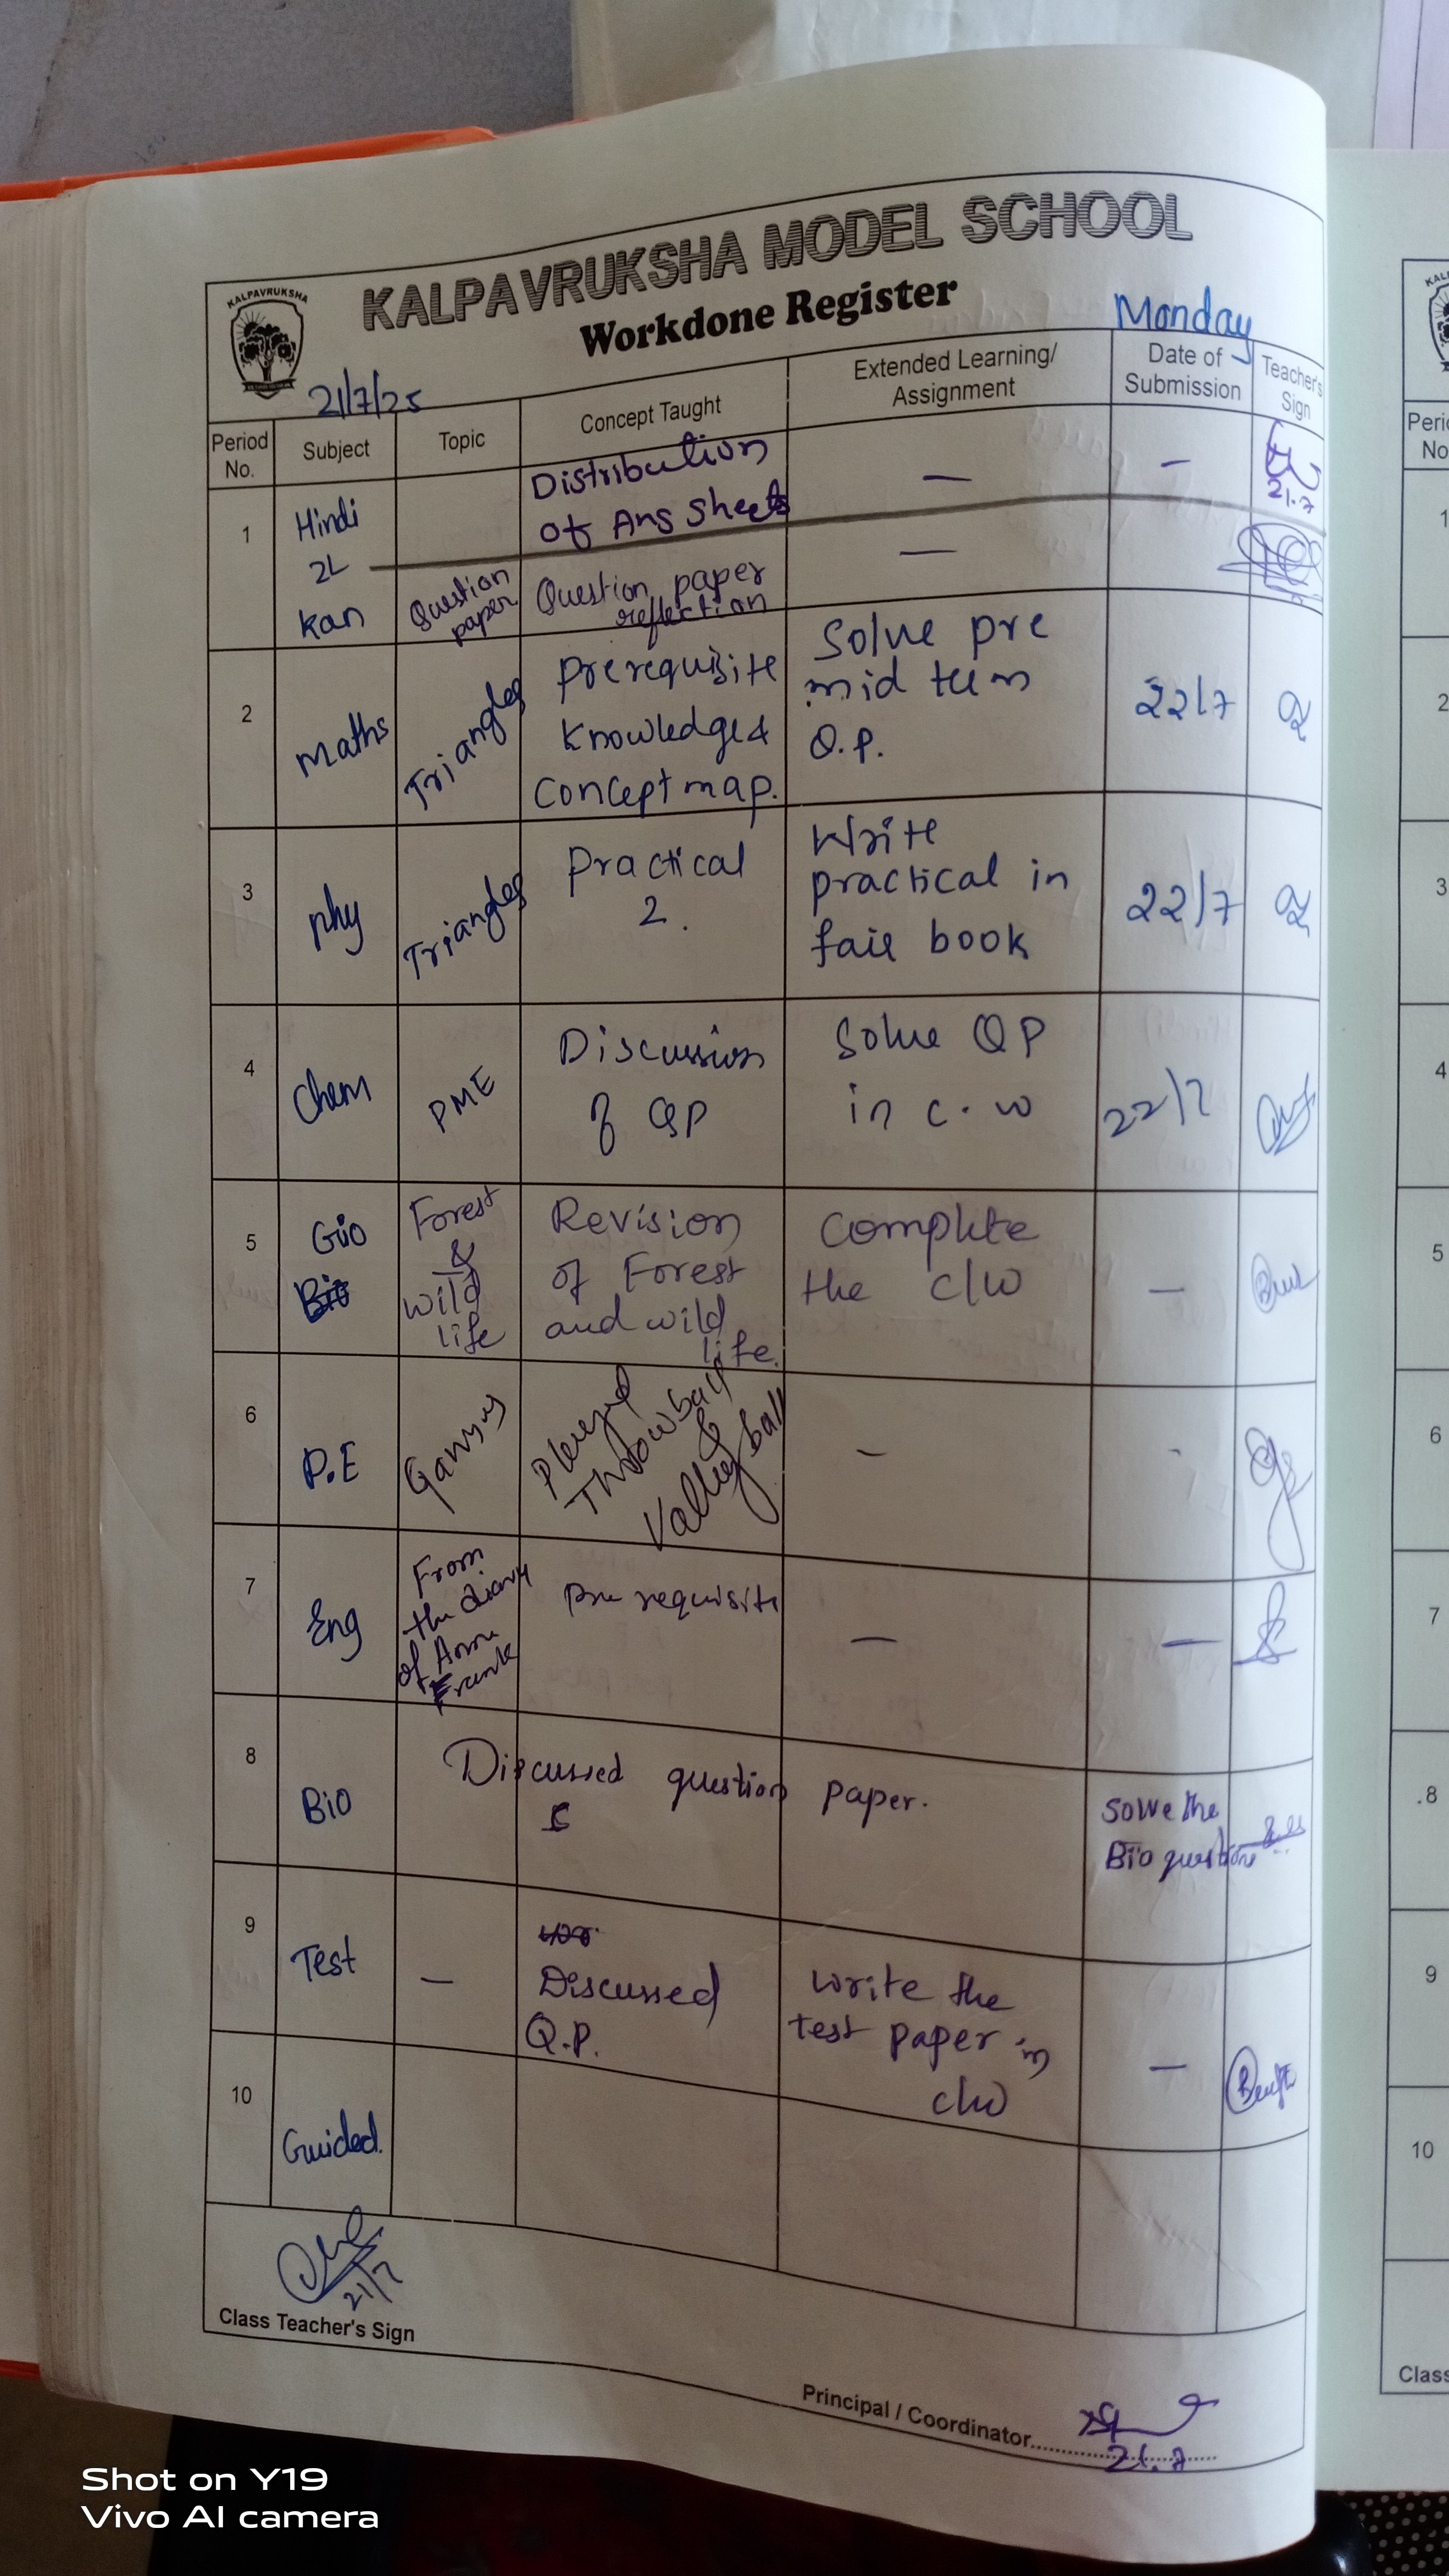 KALPAVRUKSHA
KALPAVRUKSHA MODEL SCHOOL
Workdone Register
Monday
21/7/25
Period No.
Subject
Topic
Concept Taught
Extended Learning/
Assignment
Date of
Submission
Teacher's
Sign
1
Hindi
2L
Kan
Distribution
of Ans Sheets
—
—
21.7
Question
paper
Question paper
reflection
—
2
Maths
Triangles
Prerequisite
Knowledge &
Concept map.
Solve pre
mid term
Q.P.
22/7
3
phy
Triangles
Practical
2.
Write
practical in
fair book
22/7
4
Chem
PME
Discussion
of QP
Solve QP
in c.w
22/7
5
Gio
Bio
Forest
&
wild
life
Revision
of Forest
and wild
life.
Complete
the c/w
—
6
P.E
Games
Played
Throwball
&
Valleyball
—
7
Eng
From
the diary
of Anne
Frank
Pre requisite
—
—
8
Bio
Discussed question paper.
Solve the
Bio questions
9
Test
—
Discussed
Q.P.
Write the
test paper in
c/w
—
10
Guided.
21/7
Class Teacher's Sign
Principal / Coordinator
21.7
Perio
No
1
2
3
4
5
6
7
.8
9
10
Class
Shot on Y19
Vivo AI camera